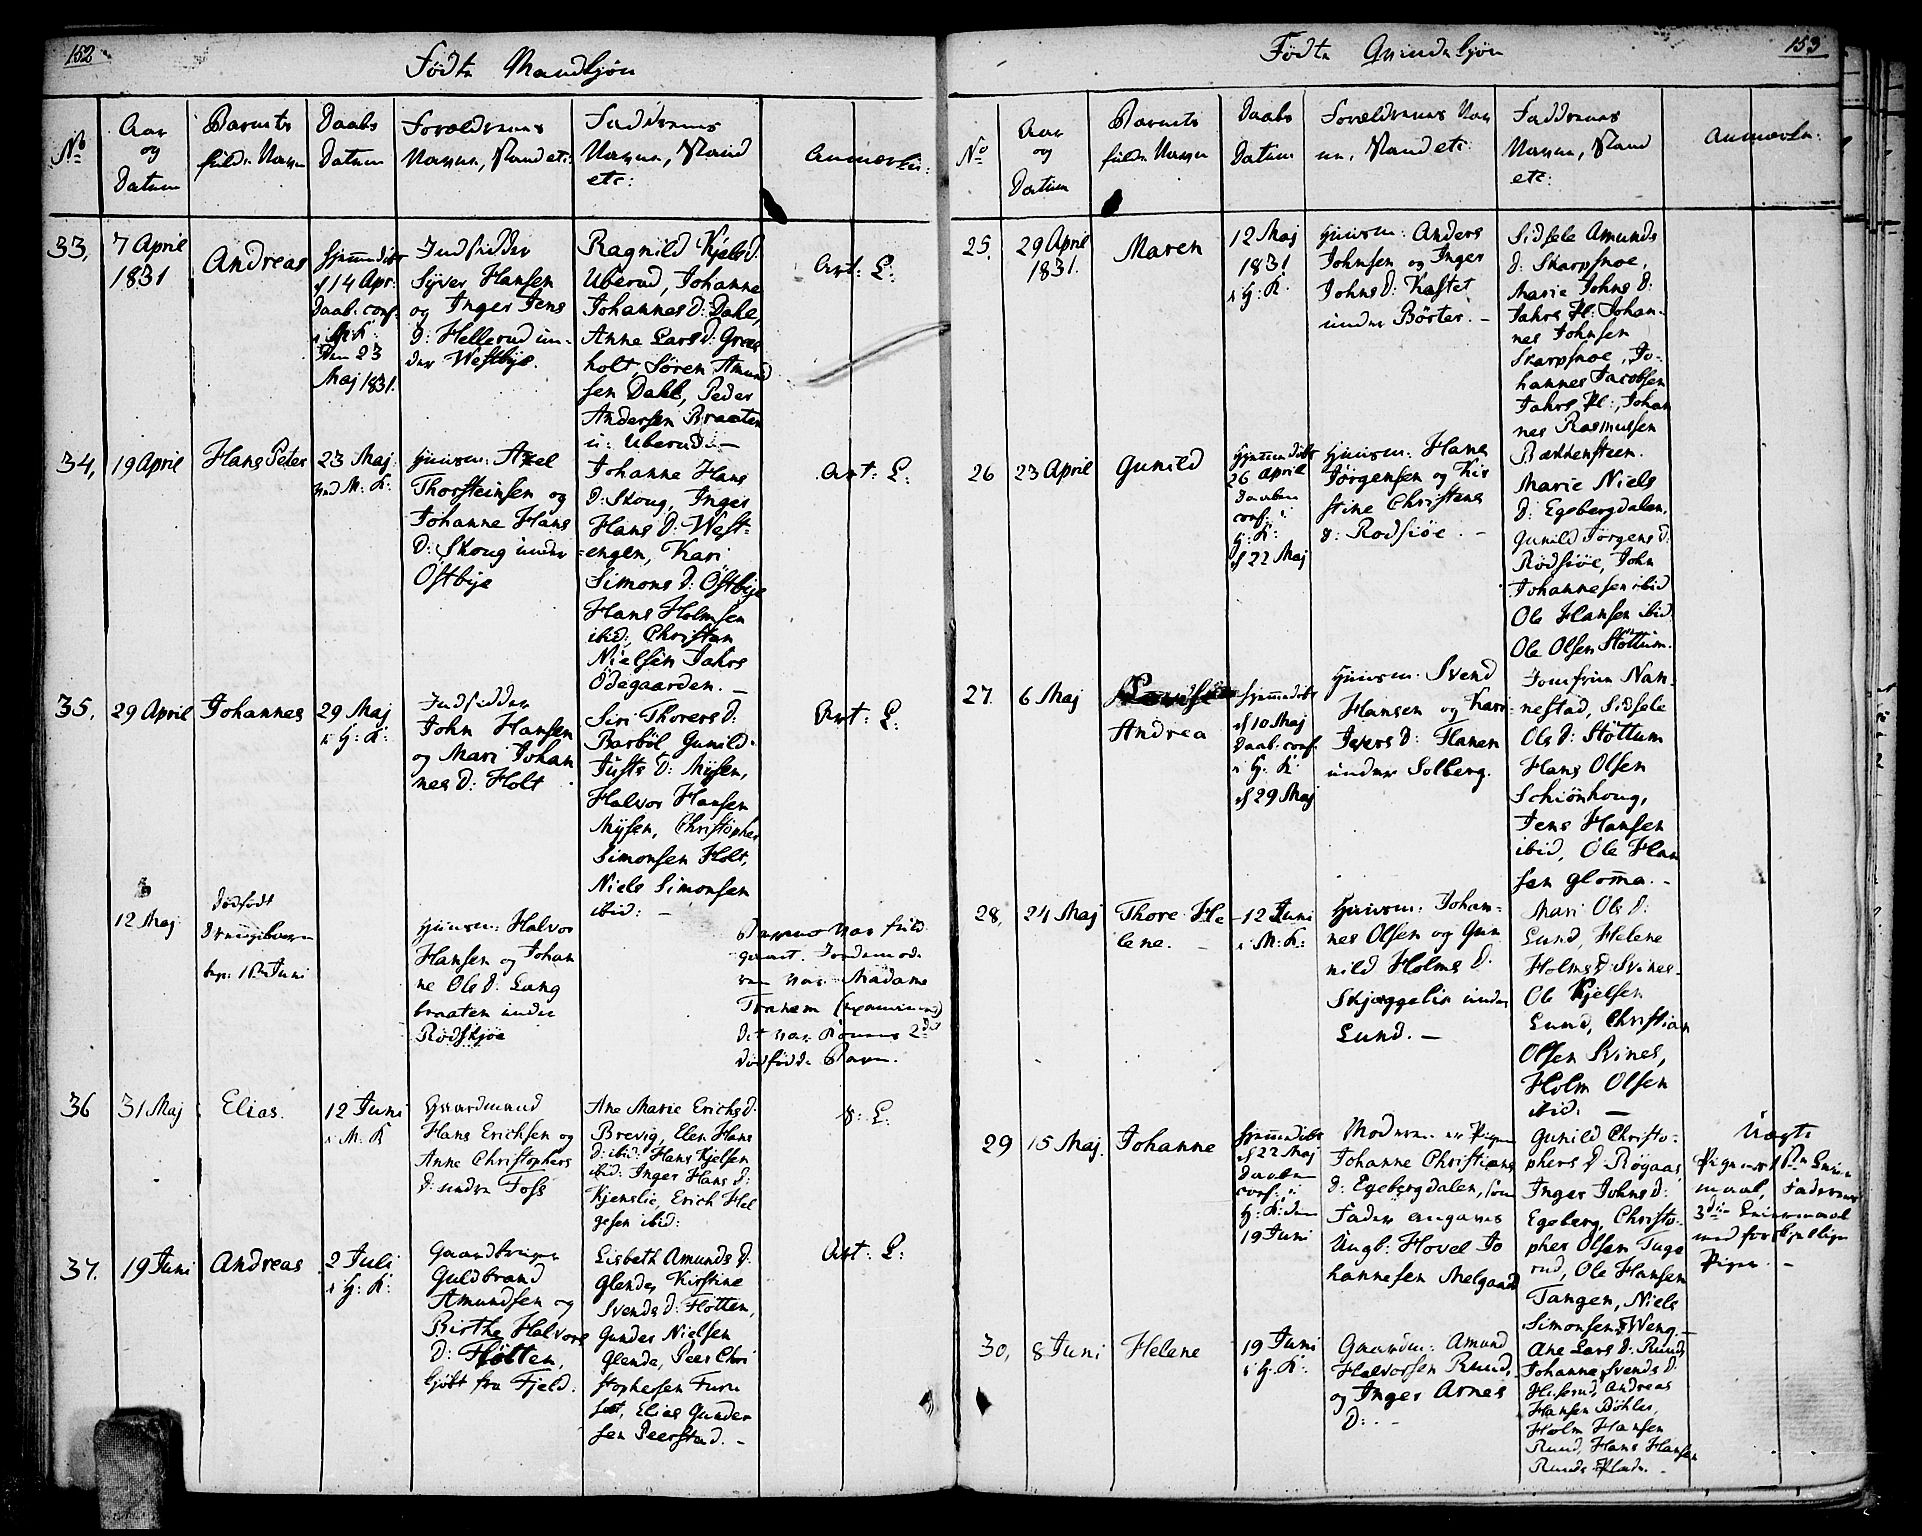 152
Fødte Mandkjøn
No
Aar
og
Datum
Barnets
fulde Navn
Daabs
Datum
Forældrenes
Navne, Stand etc:
Faddernes
Navne, Stand
etc:
Anmærkn:
33,
7 April
1831
Andreas
Hjemmedøbt
d 14 Apr:
Daab. conf.
i M: K:
Den 23
Maj 1831.
Indsidder
Syver Hansen
og Inger Jens
D: Hellerud un-
der Westbye.
Ragnild Kjels d.
Uberud, Johanne
Johannes D: Dahl,
Anne Lars d: Græs
holt, Søren Amund
sen Dahl, Peder
Andersen Braaten
u: Uberud. —
Art: L:
34,
19 April
Hans Peter
23 Maj
ved M: K:
Huusm: Axel
Thorsteinsen og
Johanne Hans
D: Skoug under
Østbye
Johanne Hans
D: Skoug, Inger
Hans D: West-
engen, Kari
Simons d: Østbye
Hans Holmsen
ibid:, Christian
Nielsen Jahrs
Ødegaarden. —
Art: L:
35,
29 April
Johannes
29 Maj
i H: K:
Indsidder
John Hansen
og Mari Johan
nes D: Holt
Siri Thorers d:
Barbøl Gunild
Justs D: Mysen,
Halvor Hansen
Mysen, Christopher
Simonsen Holt,
Niels Simonsen
ibid: —
Art: L:
12 Maj
Dødfødt
Drengebarn
begr: 1ste Juni
Huusm: Halvor
Hansen og Johan
ne Ols D: Lang
braaten under
Rødskjøe
Barnet var fuld
gaaet. Jordemode
ren var Madame
Tranem (examineret)
Det var Konens 2det
dødfødde Barn.
36
31 Maj
Elias.
12 Juni
i M: K
Gaardmand
Hans Erichsen og
Anne Christophers
D: søndre Foss
Ane Marie Erichs d.
Brevig, Elen Hans
D: ibid: Hans Kjelsen
ibid: Inger Hans d:
Kjenslie, Erich Hel
gesen ibid:
L:
37.
19 Juni
Andreas
2 Juli
i H: K:
Gaardbruger
Guldbrand
Amundsen og
Birthe Halvors
D: Høtten,
kjøbt fra Fjeld.
Lisbeth Amunds D.
Glende, Kirstine
Svends D: Høtten,
Gunder Nielsen
Glende, Peer Chri
stophersen Furu
sæt, Elias Gunder
sen Peerstad. —
Art: L:
153
Fødte Qvindekjøn
No
Aar
og
Datum
Barnets
fulde Navn
Daabs
Datum
Forældrenes Nav
ne, Stand etc:
Faddernes
Navne, Stand
etc:
Anmærkn:
25.
29 April
1831.
Maren
12 Maj
1831
i H: K.
Huusm: Anders
Johnsen og Inger
Johns D: Kastet
under Børter. —
Sidsele Amunds
D: Skarpsnoe,
Marie Johns D:
Jahrs Pl: Johan-
nes Johnsen
Skarpsnoe, Jo-
hannes Jacobsen
Jahrs Pl:, Johan
nes Rasmussen
Bækkensteen.
26
23 April
Gunild
Hjemmedøbt
26 April
Daaben
conf: i
H: K:
d 22 Maj
Huusm: Hans
Jørgensen og Kir
stine Christens
d: Rødsiøe. —
Marie Niels
D: Egebergdalen,
Gunild Jørgens d:
Rødsiøe, John
Johannesen ibid
Ole Hansen ibid.
Ole Olsen Støttum.
27.
6 Maj
Andrea
Hjemmedøbt
d 10 Maj
Daab. conf.
i H: K
d 29 Maj
Huusm: Svend
Hansen og Kari
Ivers D: Flanen
under Solberg.
Jomfrue Nan-
nestad, Sidsele
Ols D: Støttum
Hans Olsen
Schiønhoug,
Jens Hansen
ibid, Ole Han
sen Glomma. —
28,
24 Maj
Thore He
lene. —
12 Juni
i M: K:
Huusm: Johan-
nes Olsen og Gun
nild Holms D:
Skjæggelie under
Lund. —
Mari Ols D:
Lund, Helene
Holms D: Svines
Ole Kjelsen
Lund, Christian
Olsen Svines,
Holm Olsen
ibid. —
29
15 Maj
Johanne
Hjemmedøbt
d 22 Maj
Daaben
conf: i
H: K: den
19 Juni
Moderen er Pigen
Johanne Christians
D: Egebergdalen, som
Fader angaves
Ungk: Hovel Jo
hannesen Melgaard
Gunild Christo-
phers D: Røgaas,
Inger Johns D:
Egeberg, Christo-
pher Olsen Tuge
rud, Ole Hansen
Tangen, Niels
Simonsen Weng.
Uægte
Pigens 1ste Leier
maal, Faderens
3die Leiermaal
med forskjellige
Piger. —
30,
8 Juni
Helene
19 Juni
i H: K:
Gaardm: Amund
Halvorsen Ruud,
og Inger Arnes
D: —
Ane Lars D: Ruud,
Johanne Svends D:
Huserud, Andreas
Hansen Bøhler,
Holm Hansen
Ruud, Hans Hansen
Ruuds Plads. —